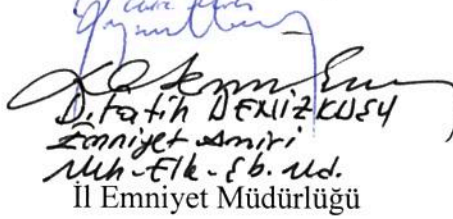 D. Fatih DENİZKUŞU
Emniyet Amiri
Muh-Elk-Şb. Md.
İl Emniyet Müdürlüğü